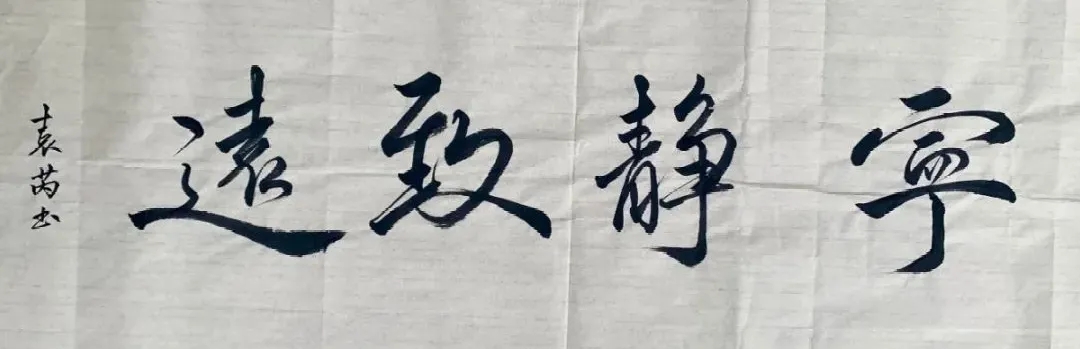 寧静致遠
袁芮书